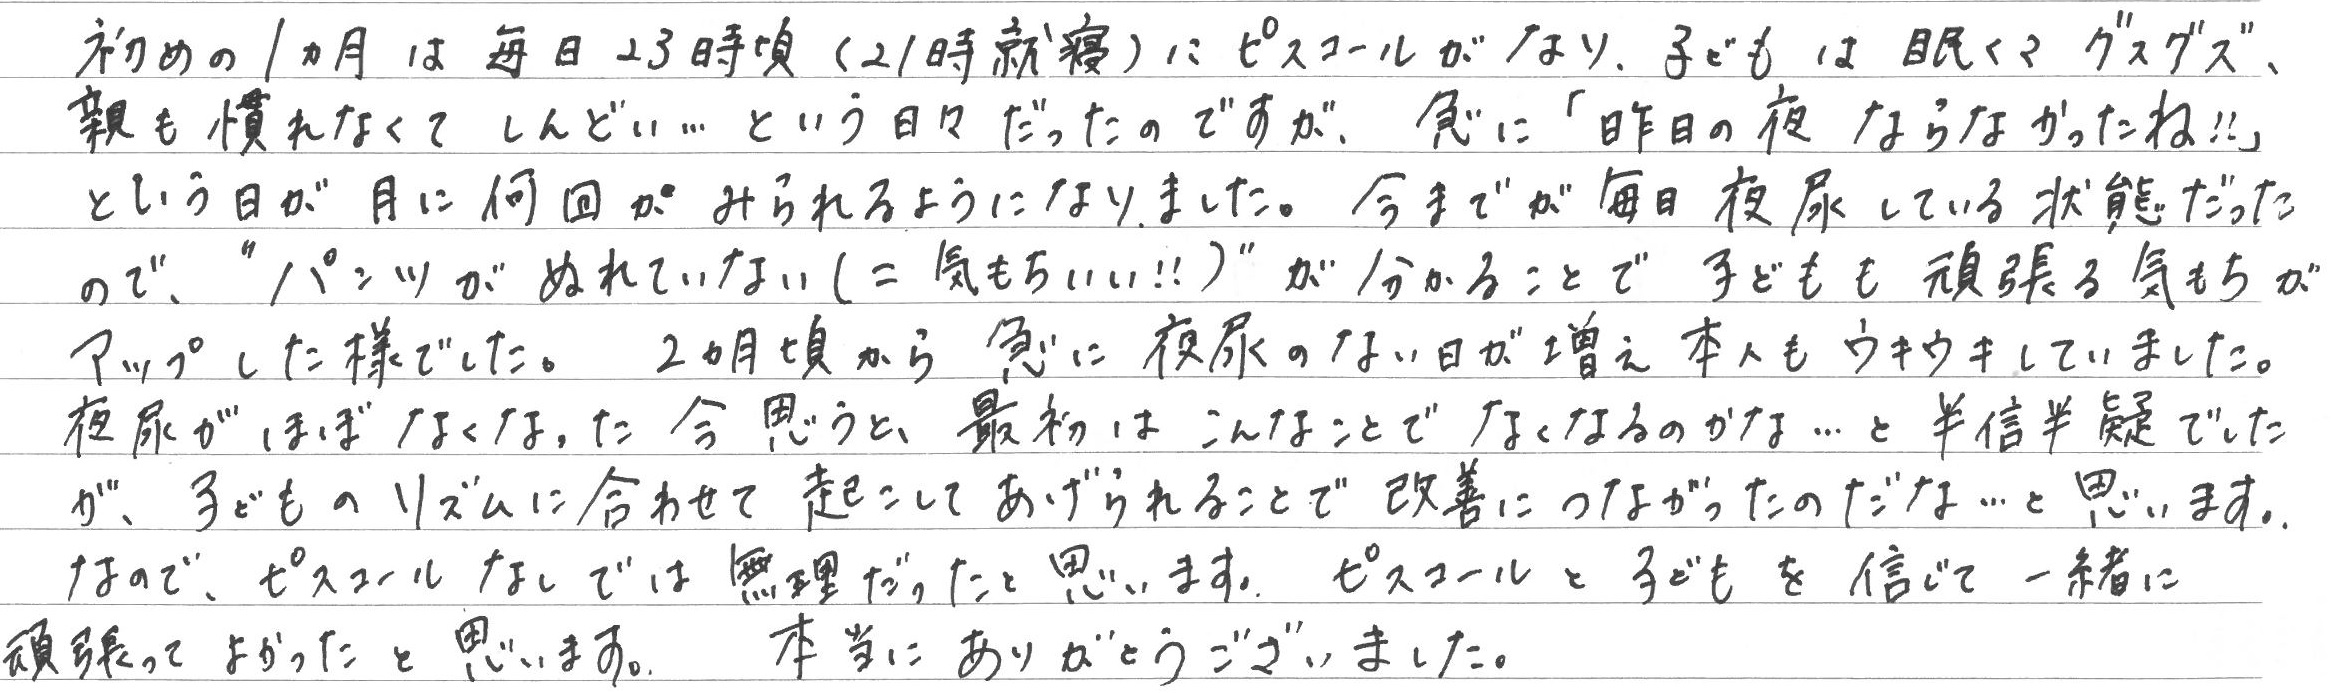 初めの1ヵ月は毎日23時頃(21時就寝)にピスコールがなり、子どもは眠くてグズグズ、
親も慣れなくてしんどい…という日々だったのですが、急に「昨日の夜ならなかったね!!」
という日が月に何回かみられるようになりました。今までが毎日夜尿している状態だった
ので、"パンツがぬれていない(=気もちいい!!)"が分かることで子どもも頑張る気もちが
アップした様でした。 2ヵ月頃から急に夜尿のない日が増え本人もウキウキしていました。
夜尿がほぼなくなった今思うと、最初はこんなことでなくなるのかな…と半信半疑でした
が、子どものリズムに合わせて起こしてあげられることで改善につながったのだな…と思います。
なので、ピスコールなしでは無理だったと思います。ピスコールと子どもを信じて一緒に
頑張ってよかったと思います。 本当にありがとうございました。